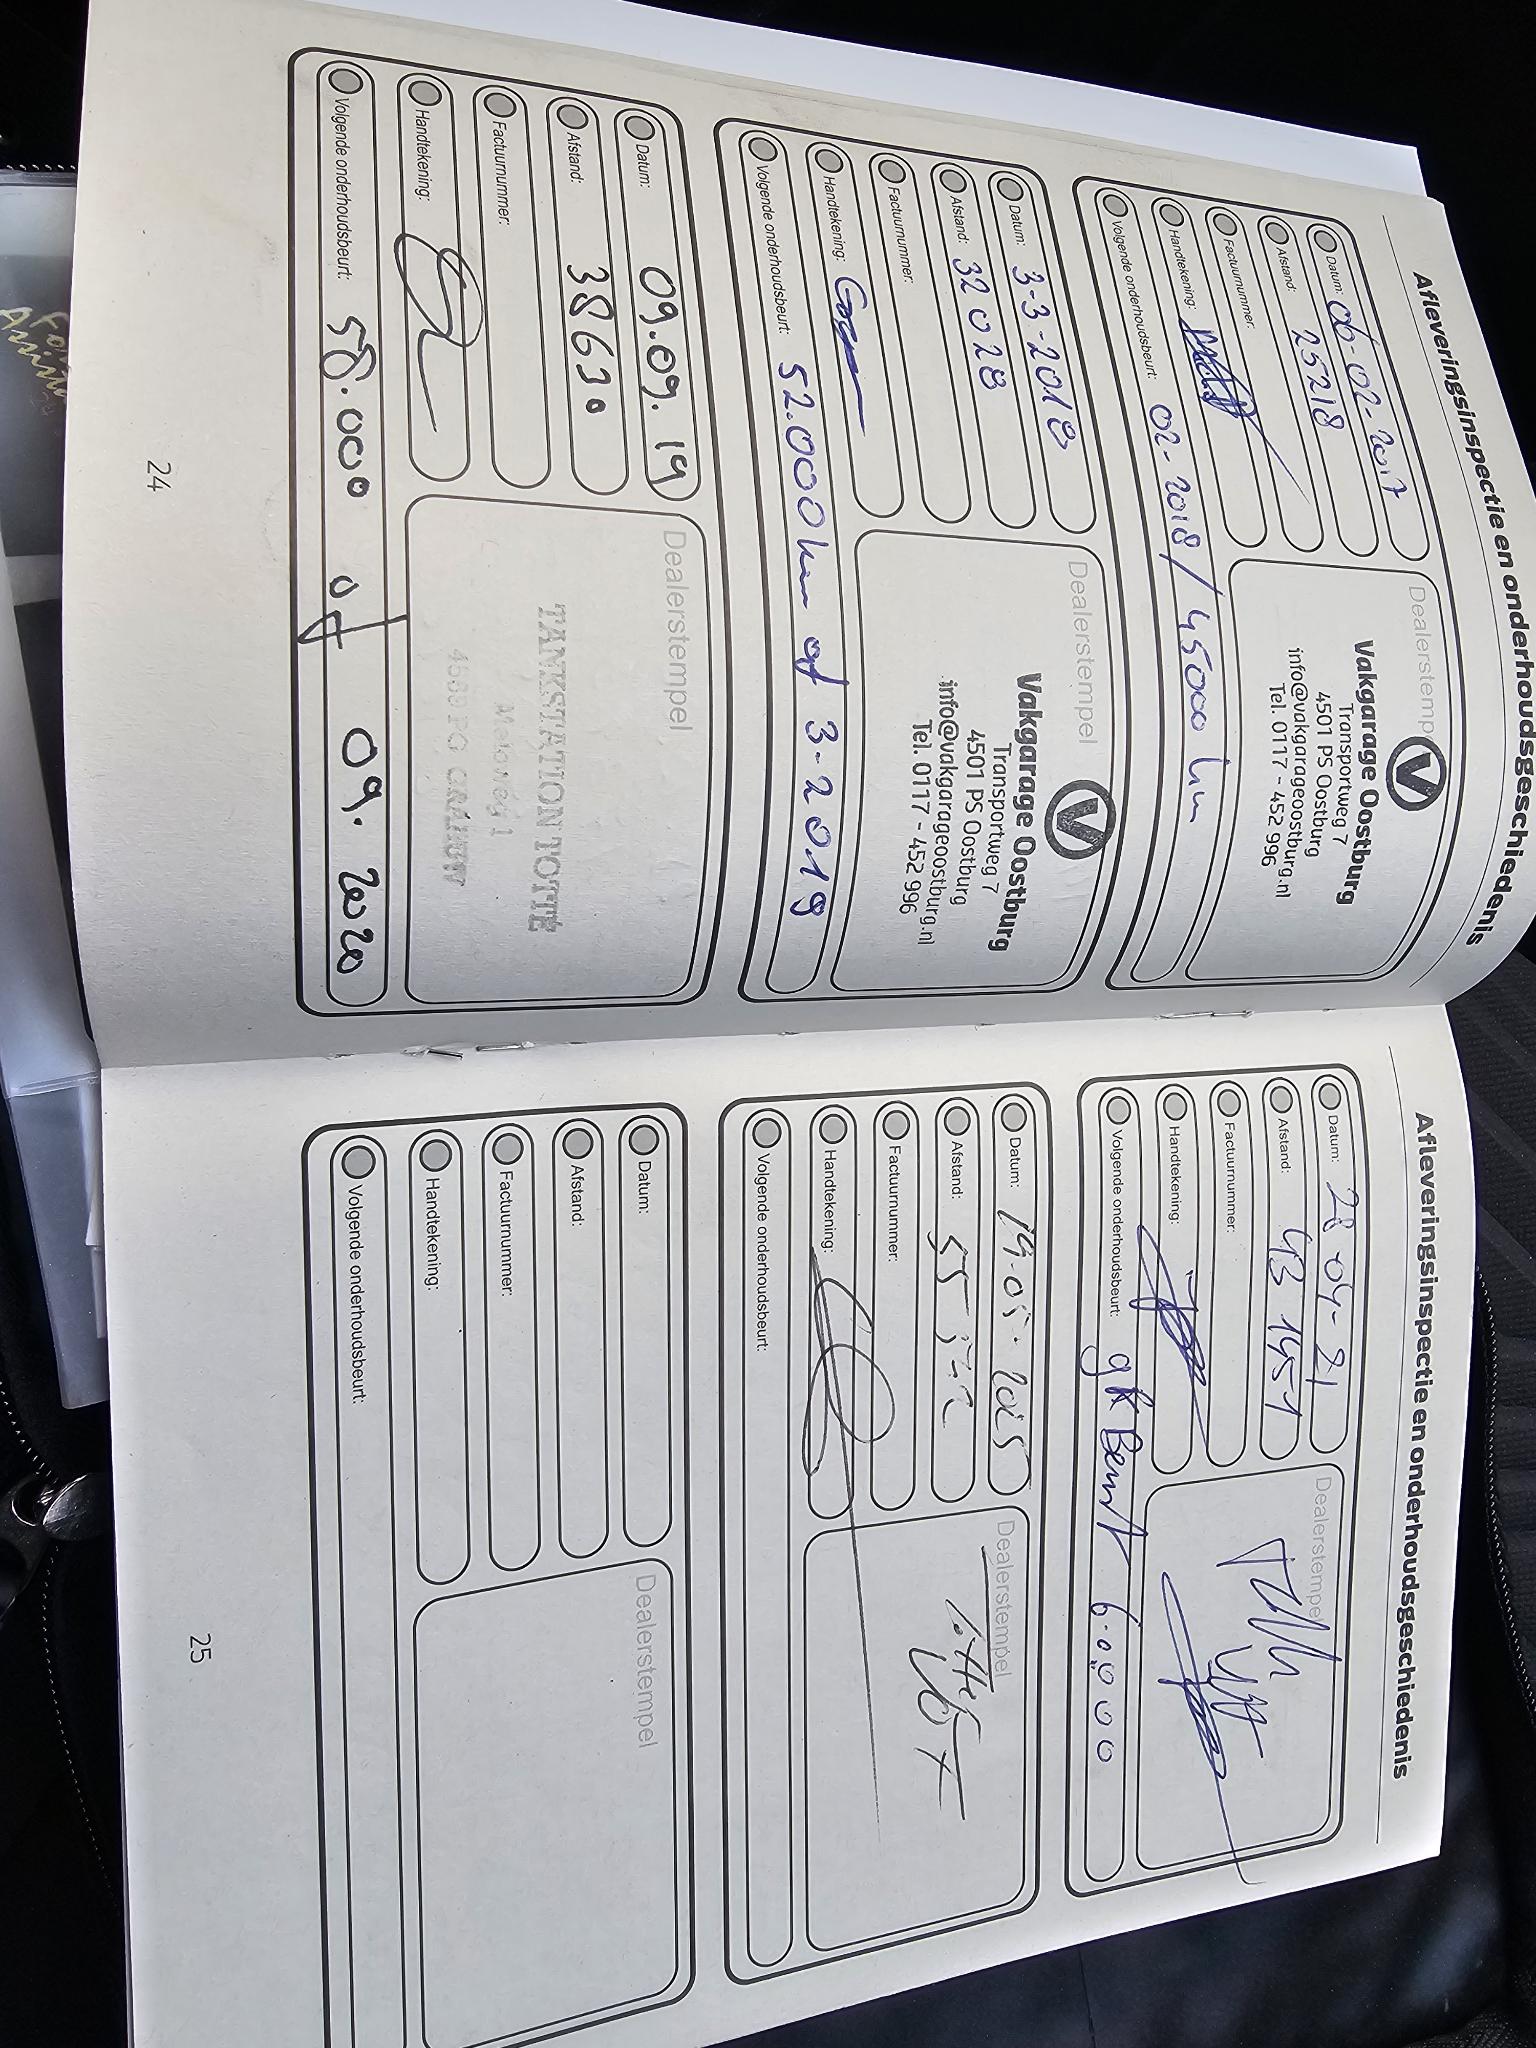 Afleveringsinspectie en onderhoudsgeschiedenis
Datum: 06-02-2017
Afstand: 25218
Factuurnummer:
Handtekening:
Volgende onderhoudsbeurt: 02-2018 / 45000 km
Dealerstempel
V
Vakgarage Oostburg
Transportweg 7
4501 PS Oostburg
info@vakgarageoostburg.nl
Tel. 0117 - 452 996
Datum: 3-3-2018
Afstand: 32028
Factuurnummer:
Handtekening:
Volgende onderhoudsbeurt: 52.000 km of 3-2019
Dealerstempel
V
Vakgarage Oostburg
Transportweg 7
4501 PS Oostburg
info@vakgarageoostburg.nl
Tel. 0117 - 452 996
Datum: 09.09.19
Afstand: 38630
Factuurnummer:
Handtekening:
Volgende onderhoudsbeurt: 58.000 of 09.2020
Dealerstempel
TANKSTATION TOTTÉ
24
Afleveringsinspectie en onderhoudsgeschiedenis
Datum: 28 04-21
Afstand: 43 1451
Factuurnummer:
Handtekening:
Volgende onderhoudsbeurt: gr Beurt 6.0000
Dealerstempel
Datum: 19-05-2025
Afstand:
Factuurnummer:
Handtekening:
Volgende onderhoudsbeurt:
Dealerstempel
Datum:
Afstand:
Factuurnummer:
Handtekening:
Volgende onderhoudsbeurt:
Dealerstempel
25